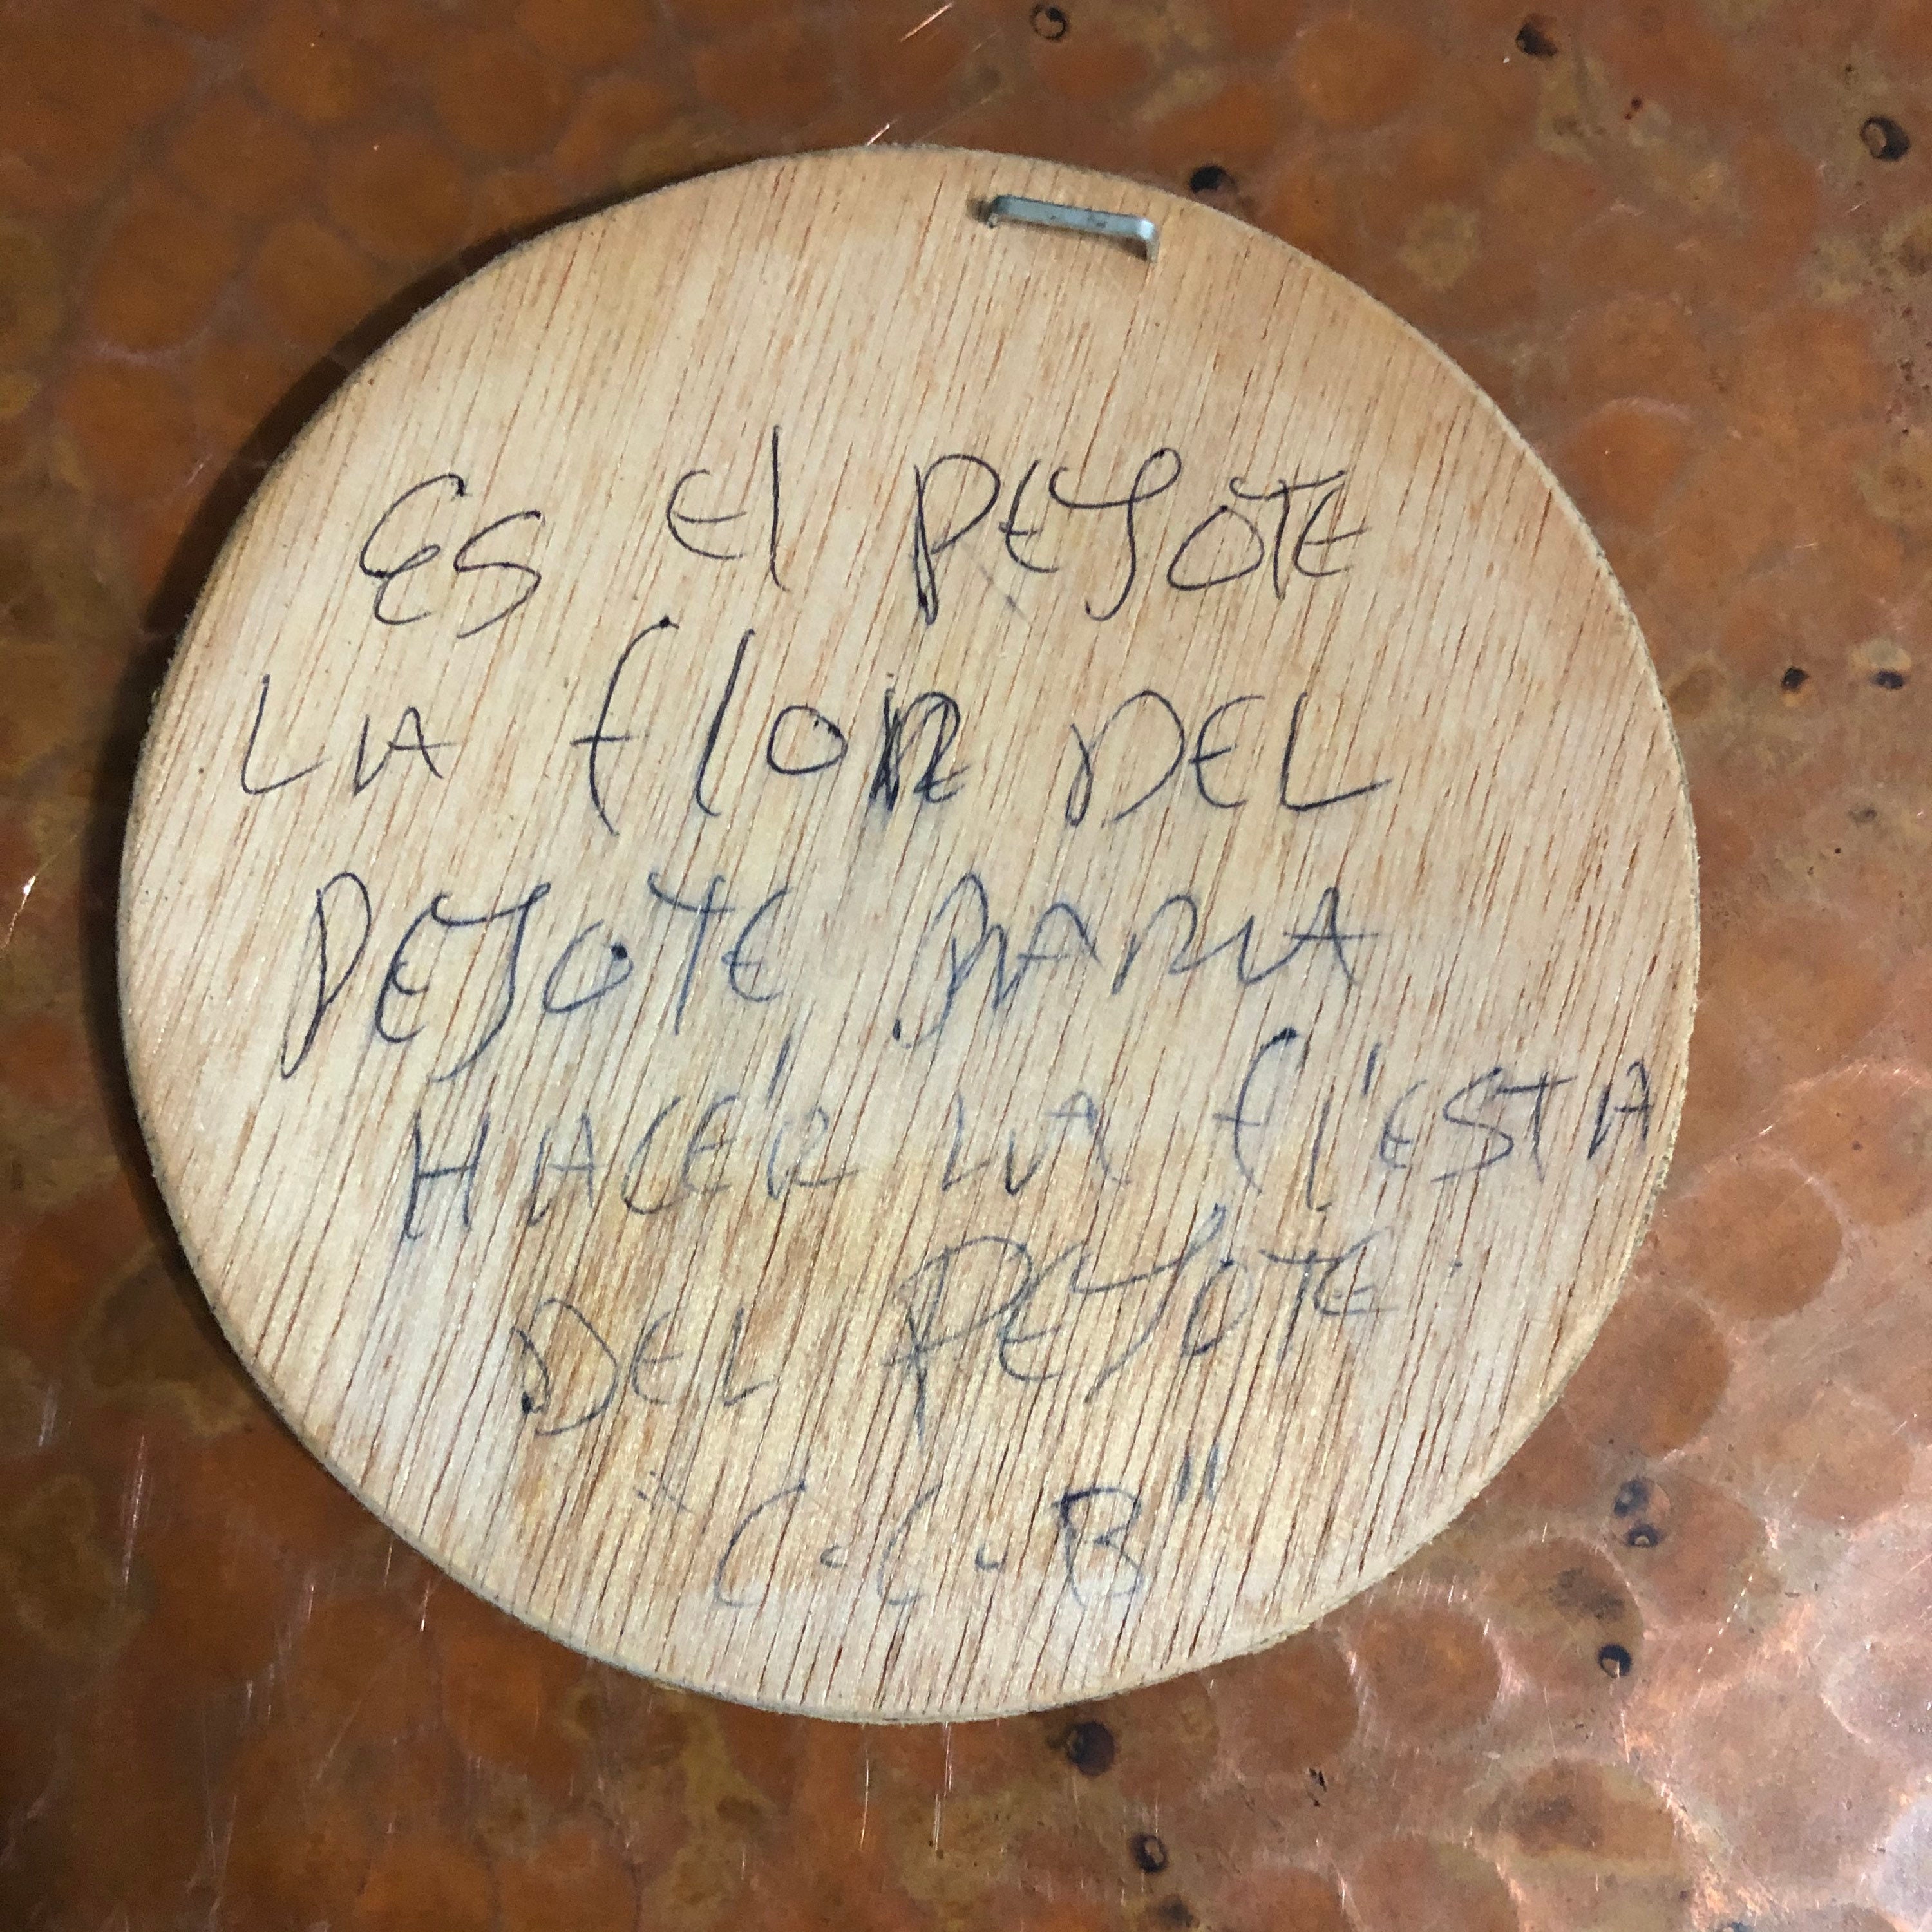 Es El PEYOTE
LA flOR DEL
PEYOTE PARA
HACER LA fIESTA
DEL PEYOTE.
"C.C.B"